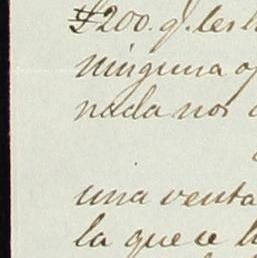 $200. q. les h
ninguna op
nada nos
una venta
la que le h